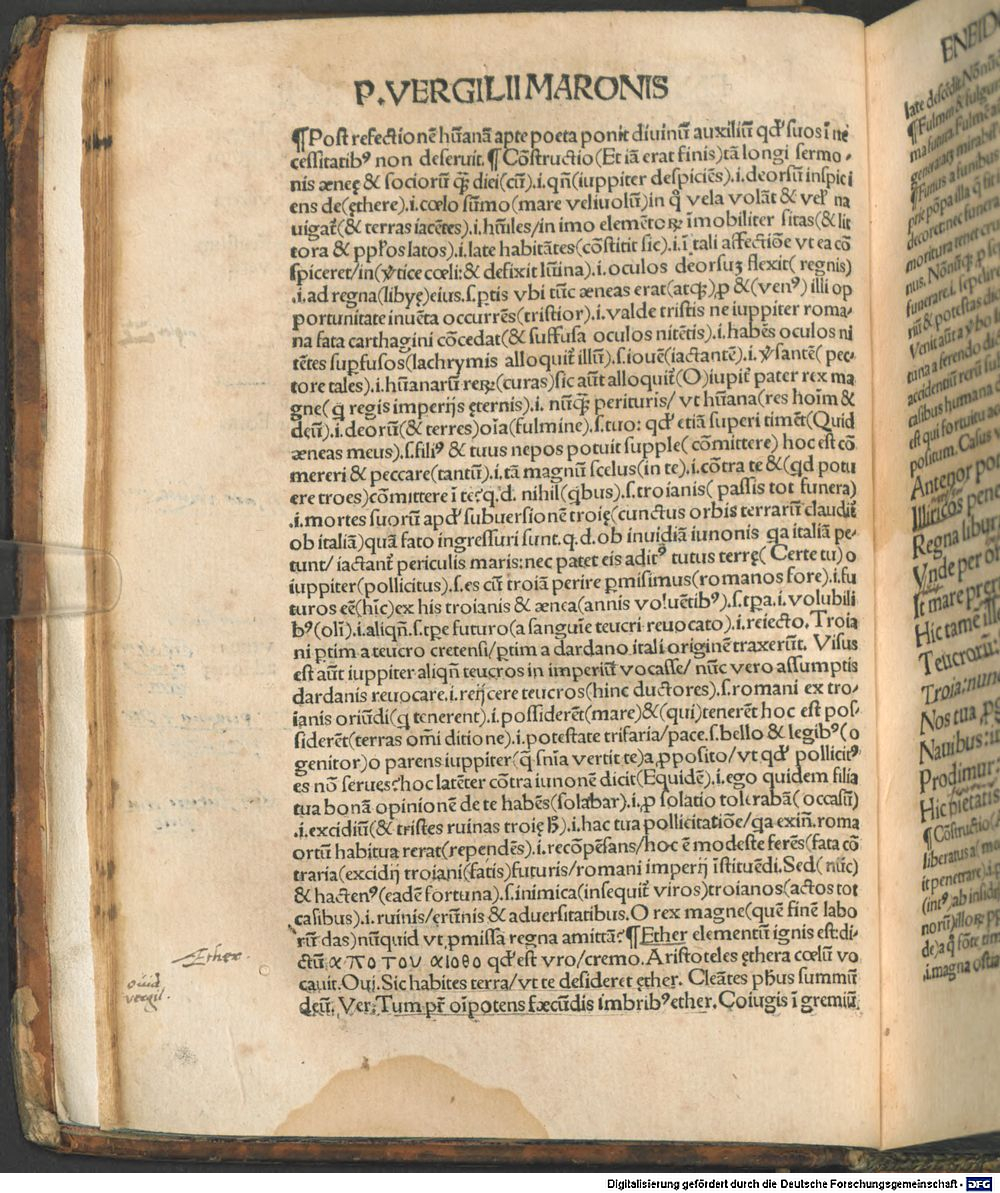 P.VERGILII MARONIS
¶Post refectionē hūanā apte poeta ponit diuinū auxiliū qđ suos ī ne
cessitatibꝰ non deseruit.¶Cōstructio(Et iā erat finis)tā longi sermo-
nis æneę & sociorū qꝫ diei(cū).i.qn̄(iuppiter despiciēs).i.deorsū inspici
ens de(ęthere).i.cœlo sūmo(mare veliuolū)in q̊ vela volāt & velꝭ na
uigat̄(& terras iacētes).i.hūiles/in imo elemētoꝝ īmobiliter sitas(& lit
tora & pp̄los latos).i.late habitātes(cōstitit sic).i.ī tali affectiōe vt ea cō
spiceret/in(v̄tice cœli:& defixit lūina).i.oculos deorsuꝫ flexit( regnis)
.i.ad regna(libyę)eius.s.ꝑtis vbi tūc æneas erat(atqꝫ)ꝓ &(venꝰ) illi op
portunitate inuēta occurrēs(tristior).i.valde tristis ne iuppiter roma-
na fata carthagini cōcedat(& suffusa oculos nitētis).i.habēs oculos ni
tētes suꝑfusos(lachrymis alloquit̄ illū).s.iouē(iactantē).i.v̄santē( pec-
tore tales).i.hūanarū reꝝ(curas)sic aūt alloquit̄(O)iupit̄ pater rex ma
gne( q̄ regis imperijs ęternis).i. nūqꝫ perituris/ vt hūana(res hoīm &
deū).i.deorū(& terres)oīa(fulmine).s.tuo: qđ etiā superi timēt(Quid
æneas meus).s.filiꝰ & tuus nepos potuit supple( cōmittere) hoc est cō
mereri & peccare(tantū).i.tā magnū scelus(in te).i.cōtra te &(qd potu
ere troes)cōmittere ī te?q.d. nihil(qͥbus).s.troianis( passis tot funera)
.i.mortes suorū apđ subuersionē troię(cunctus orbis terrarū claudit̄
ob italiā)quā fato ingressuri sunt.q.d.ob inuidiā iunonis qa italiā pe-
tunt/ iactant̄ periculis maris:nec patet eis aditꝰ tutus terrę( Certe tu) o
iuppiter(pollicitus).s.es cū troiā perire ꝑmisimus(romanos fore).i.fu
turos eē(hīc)ex his troianis & ænea(annis voluētibꝰ).s.tꝑa.i.volubili
bꝰ(olī).i.aliqn̄.s.tꝑe futuro(a sanguīe teucri reuocato).i.reiecto. Troia
ni ꝑtim a teucro cretensi/ꝑtim a dardano itali originē traxerūt. Visus
est aūt iuppiter aliqn̄ teucros in imperiū vocasse/ nūc vero assumptis
dardanis reuocare.i.reijcere teucros(hinc ductores).s.romani ex tro-
ianis oriūdi(q tenerent).i.possiderēt(mare)&(qui)tenerēt hoc est pos-
siderēt(terras omī ditione).i.potestate trifaria/pace.s.bello & legibꝰ(o
genitor)o parens iuppiter(q̄ sn̄ia vertit te)a ꝓposito/vt qđ pollicitꝰ
es nō serues?hoc latēter cōtra iunonē dicit(Equidē).i.ego quidem filia
tua bonā opinionē de te habēs(solabar).i.ꝓ solatio tolerabā( occasū)
.i.excidiū(& tristes ruinas troię ħ).i.hac tua pollicitatiōe/qa exin̄.roma
ortū habitura erat(rependēs).i.recōpēsans/hoc ē modeste ferēs(fata cō
traria(excidij troiani(fatis)futuris/romani imperij īstituēdi.Sed( nūc)
& hactenꝰ(eadē fortuna).s.inimica(insequit̄ viros)troianos(actos tot
casibus).i.ruinis/erūnis & aduersitatibus.O rex magne(quē finē labo
rū das)nūquid vt ꝓmissa regna amittā?¶Ether elementū ignis est:di-
ctū α πο του αιθο qđ est vro/cremo. Aristoteles ęthera cœlū vo
cauit.Oui.Sic habites terra/vt te desideret ęther. Cleātes pħus summū
deū. Ver.Tum pr̄ oīpotens fæcūdis imbribꝰ ether. Coiugis ī gremiū.
Ether.
ouid
vergil.
ENEID
late descēdit.Nōnūc
¶Fulmen & fulgur
ma futura.Fulmē
mirabil
¶Funus a funibus
decoret:nec funera
moritura tenet
nus. Nōnūqꝫ ꝓ
funerare.i.sepelire
riū & potestas
Venit aūt a
tuna a ferendo
accidentiū rerū
casibus humana
est qui fortuitu
positum. Casus
Antenor pot
Illiricos pene
Regna libur
Vnde per or
It mare prer
Hic tamē ille
Teucrorū:
Troia:nunc
Nos tua ꝓg
Nauibus:in
Prodimur:
Hic pietatis
¶Cōstructio(A
liberatus a( me
it penetrare).i.p
(intꝰ)ab insidi
norū)illoꝝ pp
de)a q̊ fōte tim
.i.magna ostia
Digitalisierung gefördert durch die Deutsche Forschungsgemeinschaft - DFG